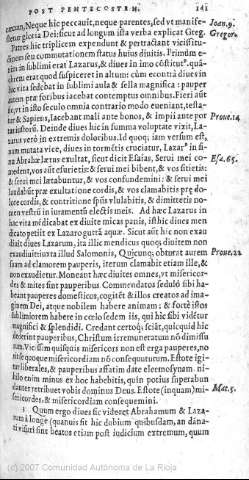 POST PENTECOSTEN. 141
cæcum, Neque hic peccauit, neque parentes, sed vt manife-
stetur gloria Dei: sicut ad longum ista verba explicat Greg.
Ioan. 9.
Gregor.
Patres hic triplicem expendunt & pertractant vicissitu-
dinem siue commutationem status huius diuitis. Primùm e-
nim in sublimi erat Lazarus, & diues in imo
quàm erat quod suspiceret in altum: cùm econtrà diues in
hac vita sedebat in sublimi aula & sella magnifica : pauper
autem præ foribus iacebat contemptus omnibus.
rit, id in isto seculo omnia contrario modo eueniant, testa-
tur & Sapiens, Iacebant mali ante bonos, & impij ante por-
Prou. 14
tas iustorū. Deinde diues hic in summa voluptate vixit, La-
zarus verò in extremis doloribus. Id quoq; iam versum est,
nam mutata vice, diues in tormētis cruciatur, Lazarus in si-
nu Abrahæ lætus exultat, sicut dicit Esaias, Serui mei co-
Esa. 65.
medent, vos aūt esurietis: & serui mei bibent, & vos sitietis:
& serui mei lætabuntur, & vos confundemini: & serui mei
laudabūt præ exultatione cordis, & vos clamabitis præ do-
lore cordis, & contritione spūs vlulabitis, & dimittetis no-
men vestrū in iuramentū electis meis. Ad hæc Lazarus in
hac vita medicabat ex diuite micas panis, isthic diues men
dicato petit ex Lazaro guttā aquæ. Sicut aūt hic non exau
diuit diues Lazarum, ita illic mendicus quoq; diuitem non
exaudiuit: iuxta illud Salomonis, Quicunq; obturat aurem
Prou. 21
suam ad clamorem pauperis, iterum clamabit etiam ille, &
non exaudietur. Moneant hæc diuites omnes, vt misericor-
des & mites sint pauperibus. Commendatos sedulò sibi ha-
beant pauperes domesticos, cogitēt & illos creatos ad ima-
ginem Dei, atque nobilem habere animam : & fortè istos
sublimiorem habere in cœlo sedem iis, qui hic sibi vidētur
magnifici & splendidi. Credant certoq; sciāt, quicquid hic
fecerint pauperibus, Christum irremuneratum nō dimissu-
rum. Vicissim quisquis misericors non est erga pauperes, no
uerit se quoque misericordiam nō consequuturum. Estote igi-
tur liberales, & pauperibus affatim date eleemosynam. ni-
hilo enim minus ex hoc habebitis, quin potius superabun
danter retribuet vobis dominus Deus. Estote (inquam) mi-
sericordes, & misericordiam consequemini.
Mat. 5.
3 Quum ergo diues sic videret Abrahamum & Laza-
rum à longè (quanuis sit hic dubium quibusdam, an dāna-
ti visuri sint beatos etiam post iudicium extremum, quum
(c) 2007 Comunidad Autónoma de La Rioja